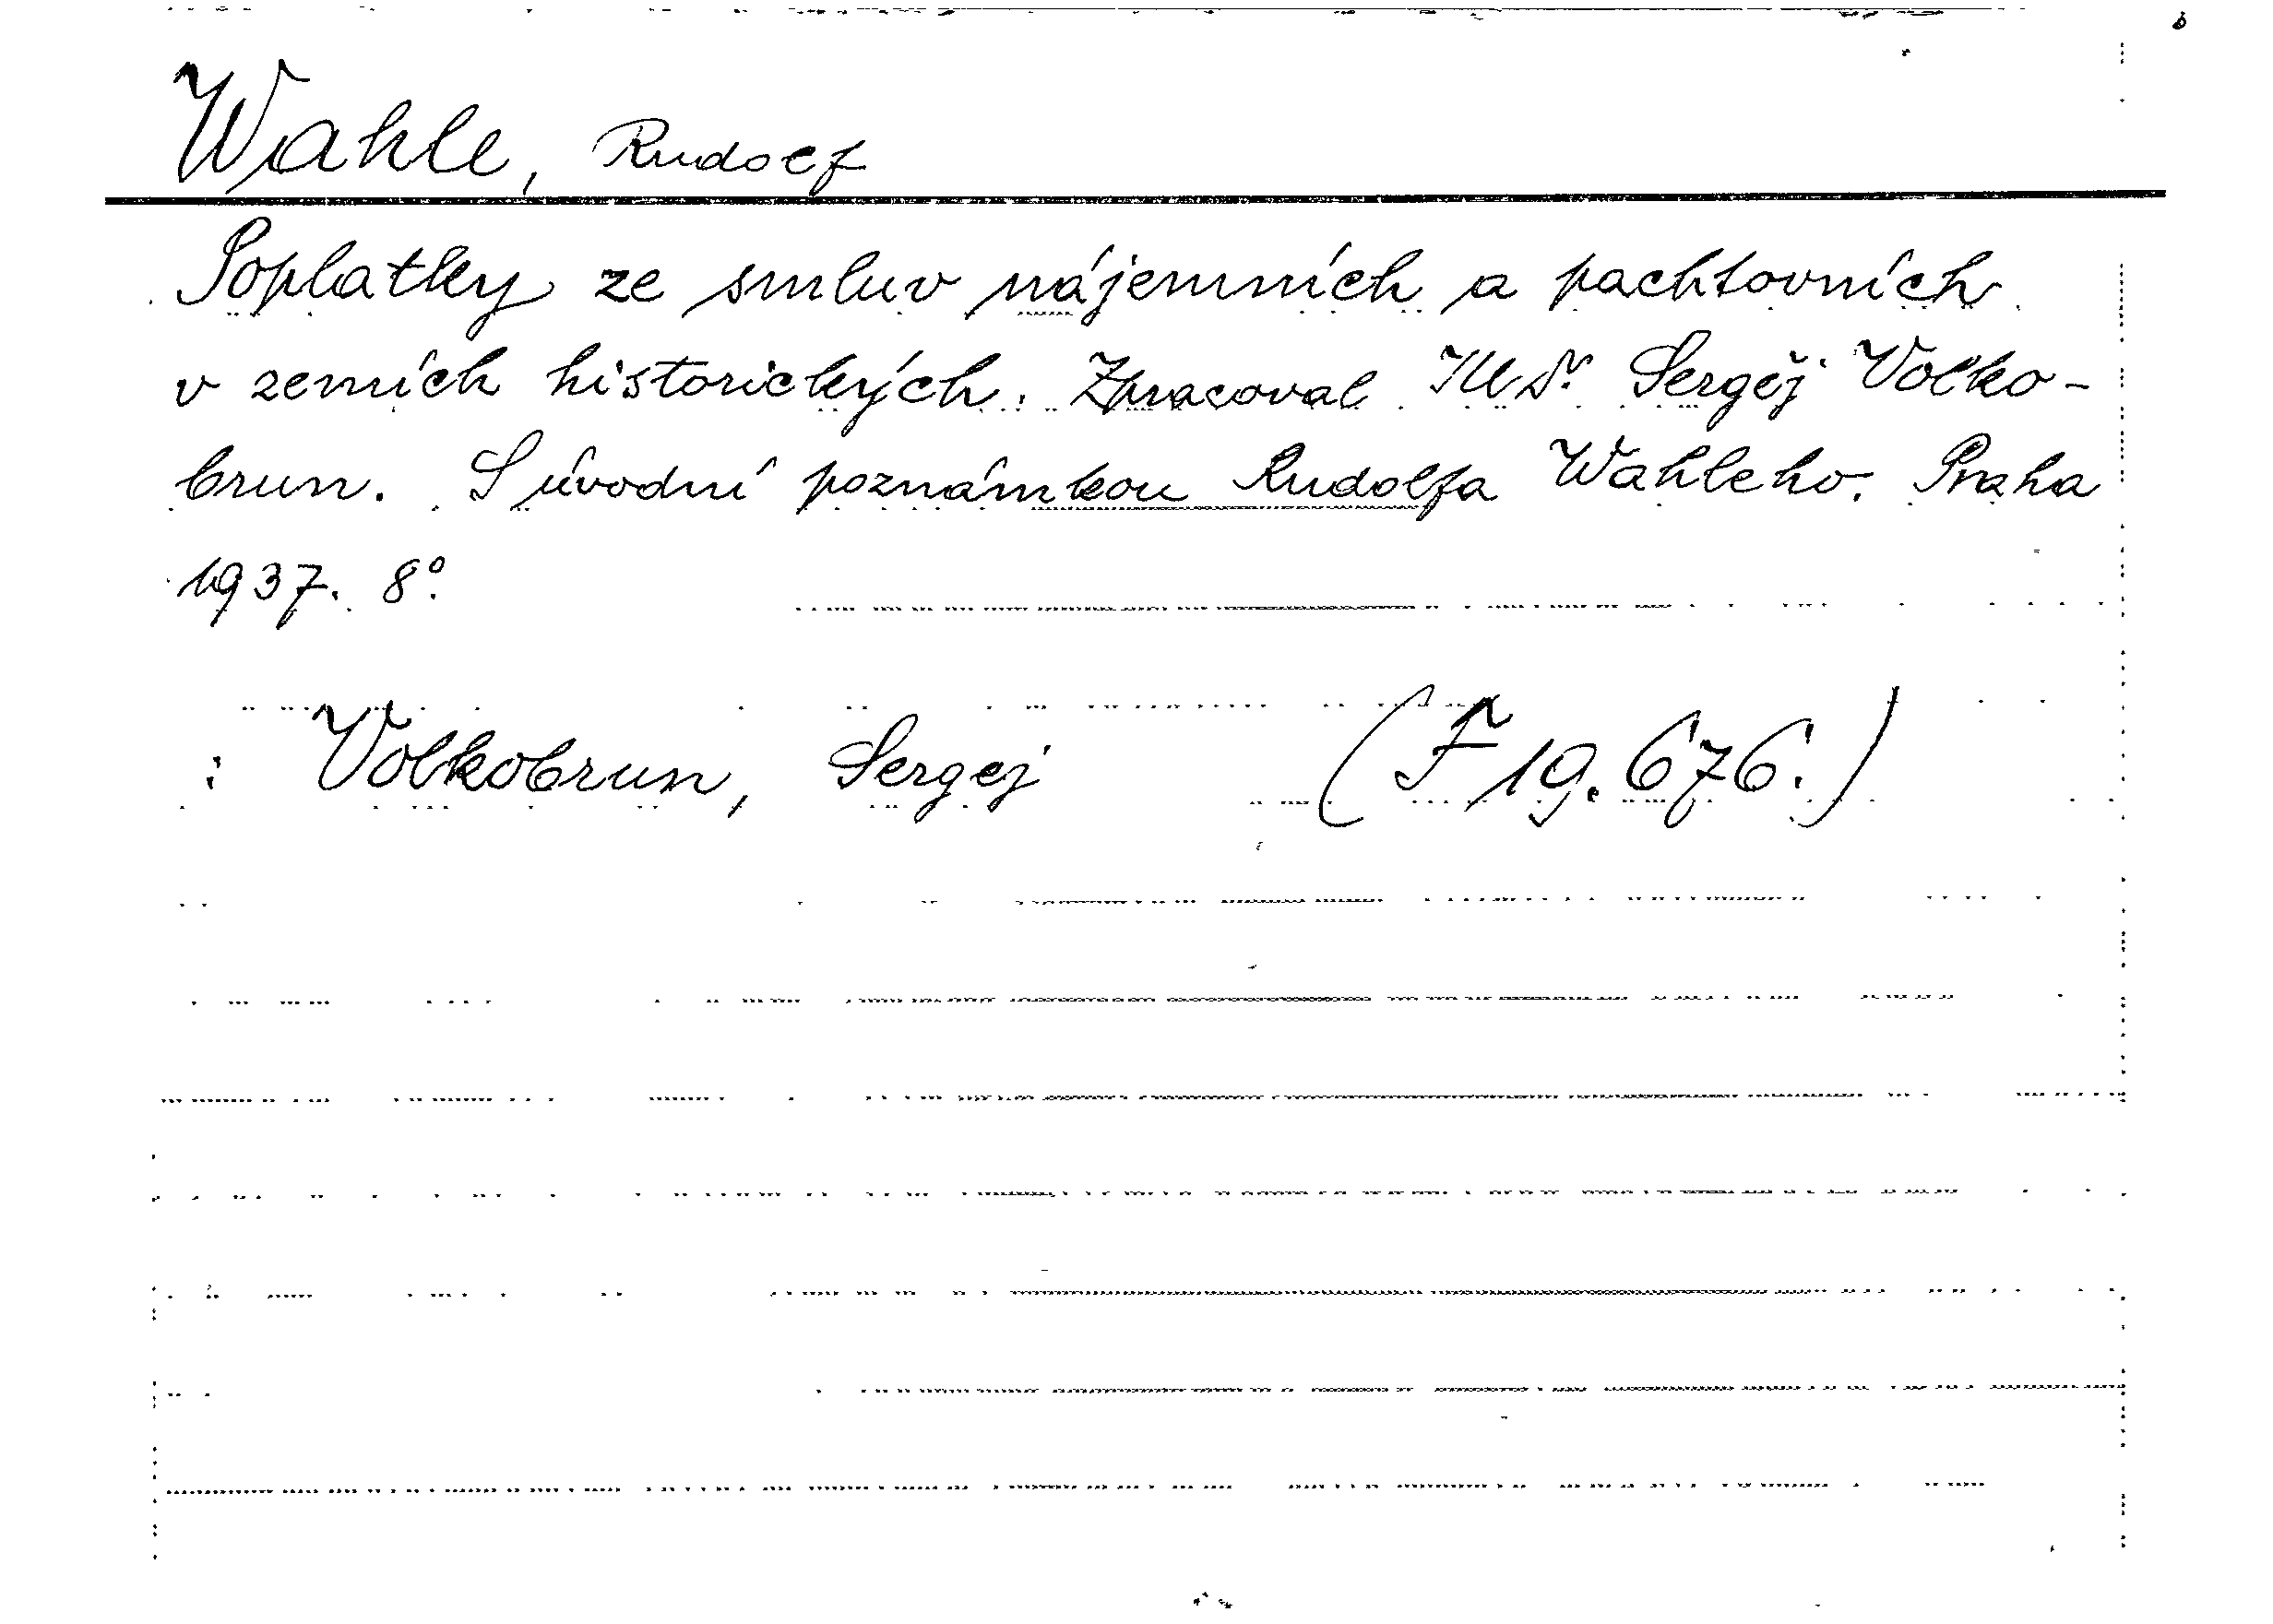 Wahle, Rudolf
Poplatky ze smluv nájemních a pachtovních
v zemích historických. Zpracoval JUDr. Sergěj Volko-
brun. S úvodní poznámkou Rudolfa Wahleho. Praha
1937. 8°.
: Volkobrun, Sergej (F 19.676.)